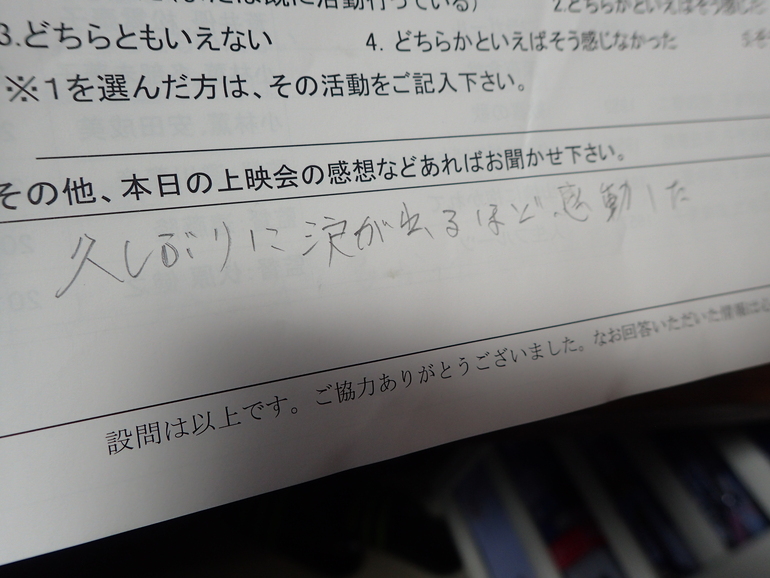 既に活動行っている）
2.どちらかといえばそう感じた
3.どちらともいえない
4. どちらかといえばそう感じなかった
※１を選んだ方は、その活動をご記入下さい。
その他、本日の上映会の感想などあればお聞かせ下さい。
久しぶりに涙が出るほど感動した
設問は以上です。ご協力ありがとうございました。なお回答いただいた情報は